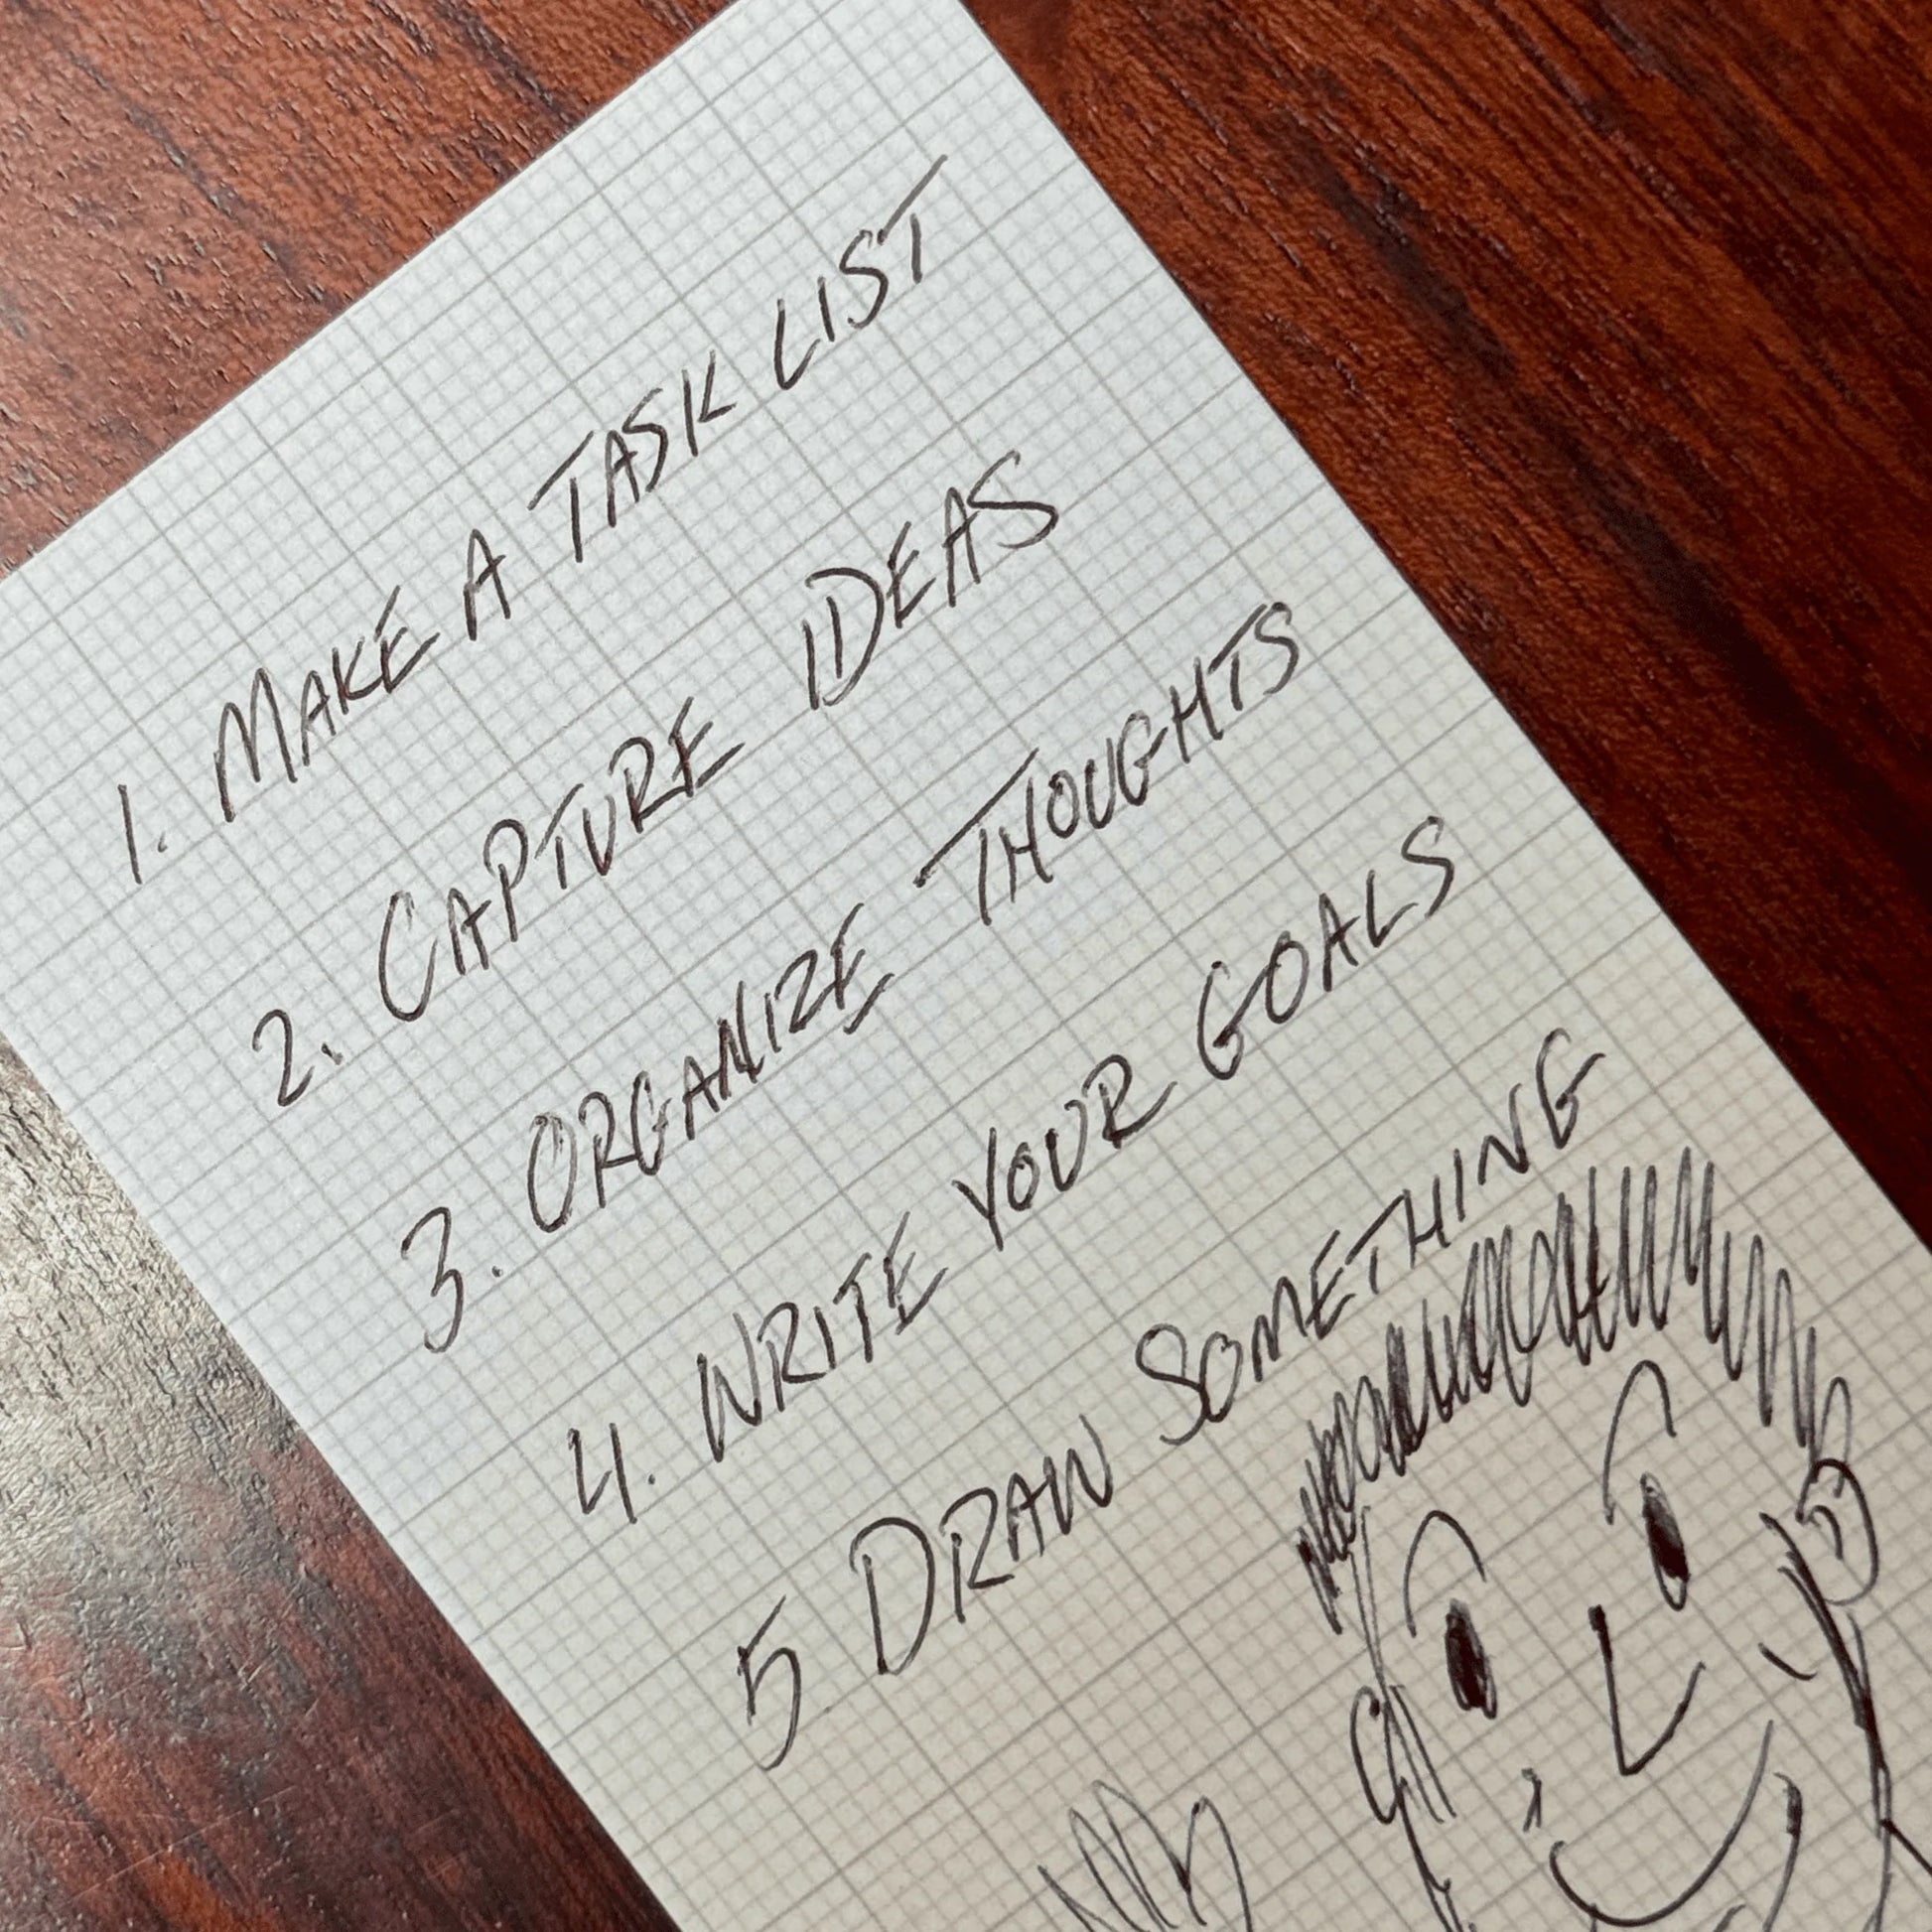 1. MAKE A TASK LIST
2. CAPTURE IDEAS
3. ORGANIZE THOUGHTS
4. WRITE YOUR GOALS
5 DRAW SOMETHING